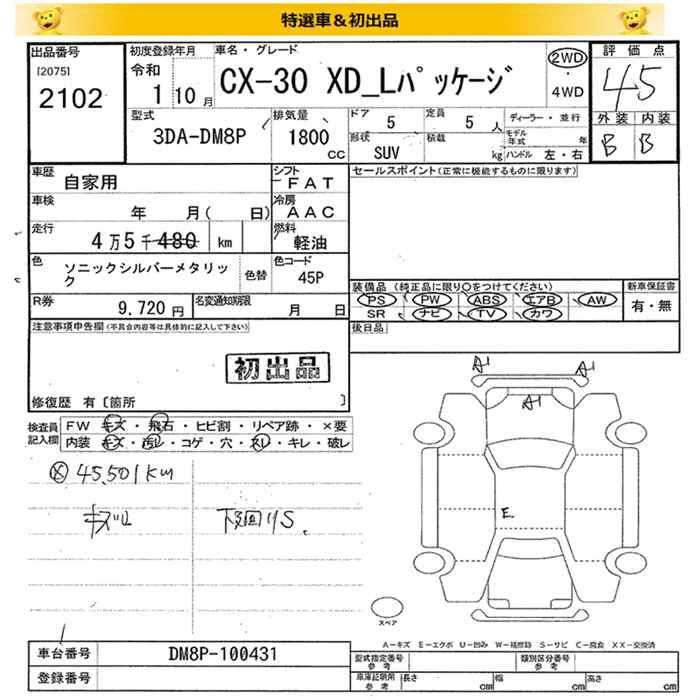 特選車＆初出品
出品番号 初度登録年月 車名・グレード 評価点
[2075] 令和 2WD
2102 1 10月 CX-30 XD_Lパッケージ ・ 45
4WD
型式 排気量 ドア 5 定員 5 人 ディーラー・並行 外装 内装
3DA-DM8P 1800 cc 形状 SUV 積載 kg モデル年式 年 B B
ハンドル 左・右
車歴 自家用 シフト FAT セールスポイント(正常に機能するものに限ります)
車検 年 月( 日) 冷房 AAC
走行 4万5千480 km 燃料 軽油
色 ソニックシルバーメタリック 色替 色コード 45P
装備品 (純正品に限り○をつけてください) 新車保証書
PS PW ABS エアB AW 有・無
SR ナビ TV カワ
R券 9.720円 名変通知期限 月 日
後日品
注意事項申告欄(不具合内容等は具体的に記入して下さい)
初出品
修復歴 有〔箇所 〕
検査員記入欄 FW キズ・飛石・ヒビ割・リペア跡・×要
内装 キズ・汚レ・コゲ・穴・スレ・キレ・破レ
A1 A1
A1
E
45.501km
キズ凹 下廻りS.
スペア
A－キズ E－エクボ U－凹み W－補修跡 S－サビ C－腐食 XX－交換済
車台番号 DM8P-100431
登録番号
型式指定番号 参考 類別区分番号 参考
車庫証明用 参考 長さ cm 幅 cm 高さ cm